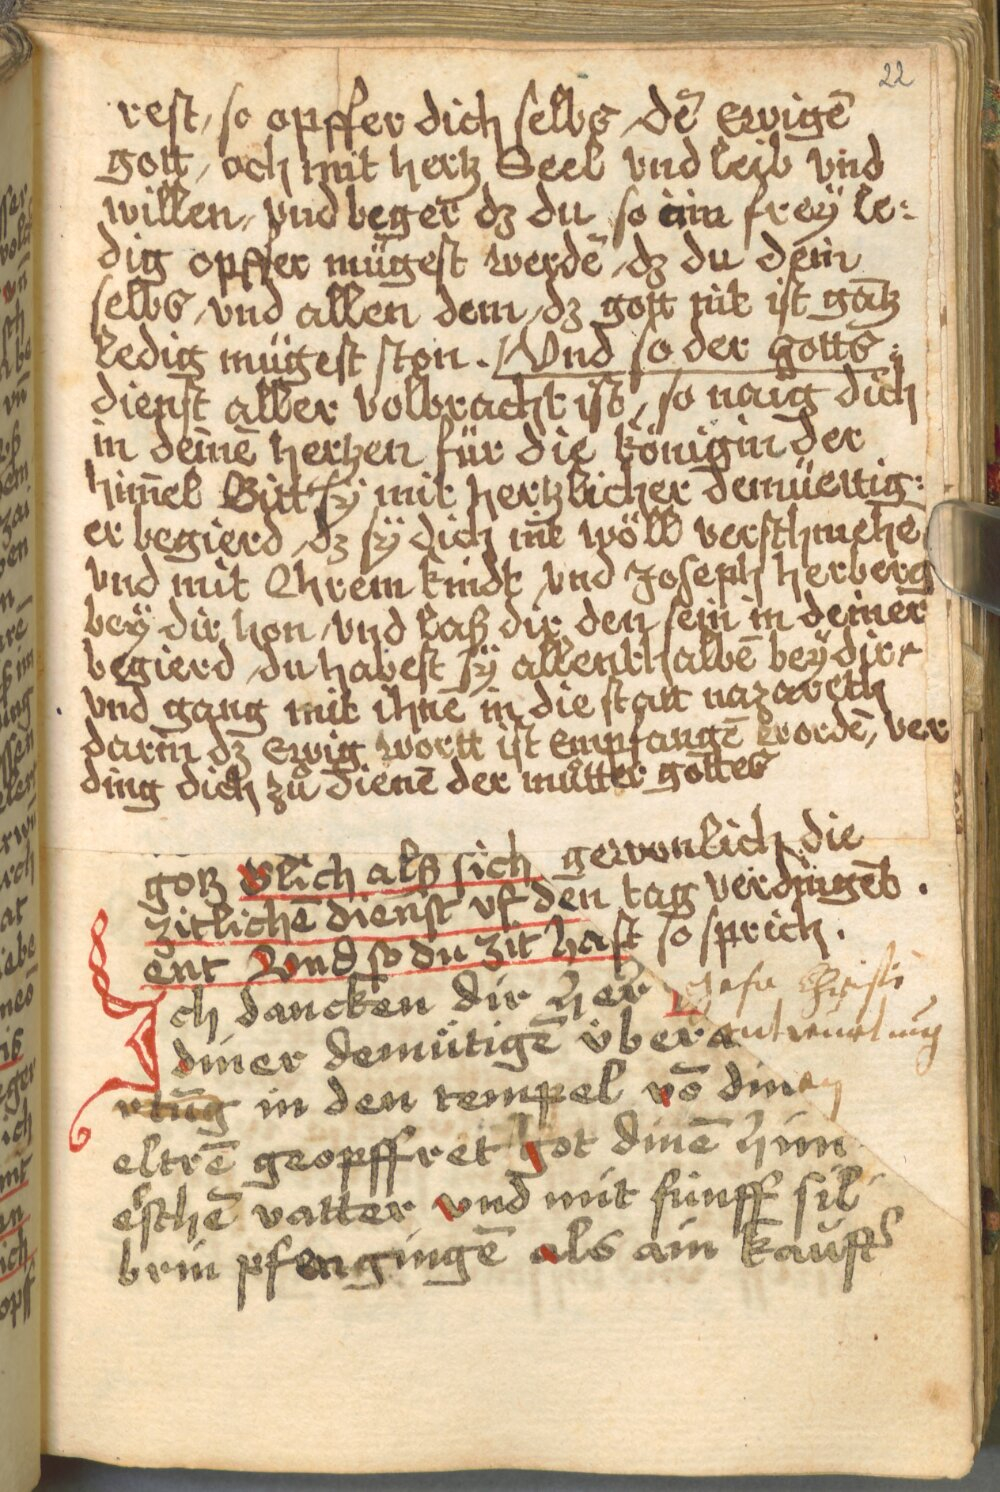 22
rest, so opffer dich selbs, dē ewigē
gott, och mit hertz Seel vnd leib vnd
willen, vnd beger dz du so ain frey le:
dig opffer mügest werdē, dz du dein
selbs, vnd allen dem, dz gott nit ist gātz
ledig mügest ston. Vnd so der gotts:
dienst aller volbracht ist, so naig dich
in deinē hertzen für die königin der
him̄el Bitt sÿ mit hertzlicher demüettig:
er begierd, dz sÿ dich nit wöll verschmehe,
vnd mit Ihrem kindt, vnd Joseph herberg
bey dir hon, vnd laß dir den sein in deiner
begierd, du habest sÿ allenthalbē beÿ dir,
vnd gang mit ihnē in die statt nazareth
darin dz ewig wortt ist empfangē wordē, ver
ding dich zů dienē der můtter gottes
gotz glich alß sich gewonlich die
zitlichē dienst vf den tag verdingēt.
ent Vnd so du zit hast so sprich.
Ich dancken dir her Jhesu Christi
diner demütigē übera antwurtung
rtūg in den tempel vō dinen
eltrē geopffret got dinē him
elschē vatter vnd mit fünff sil
brin pfengingē als ain kauft